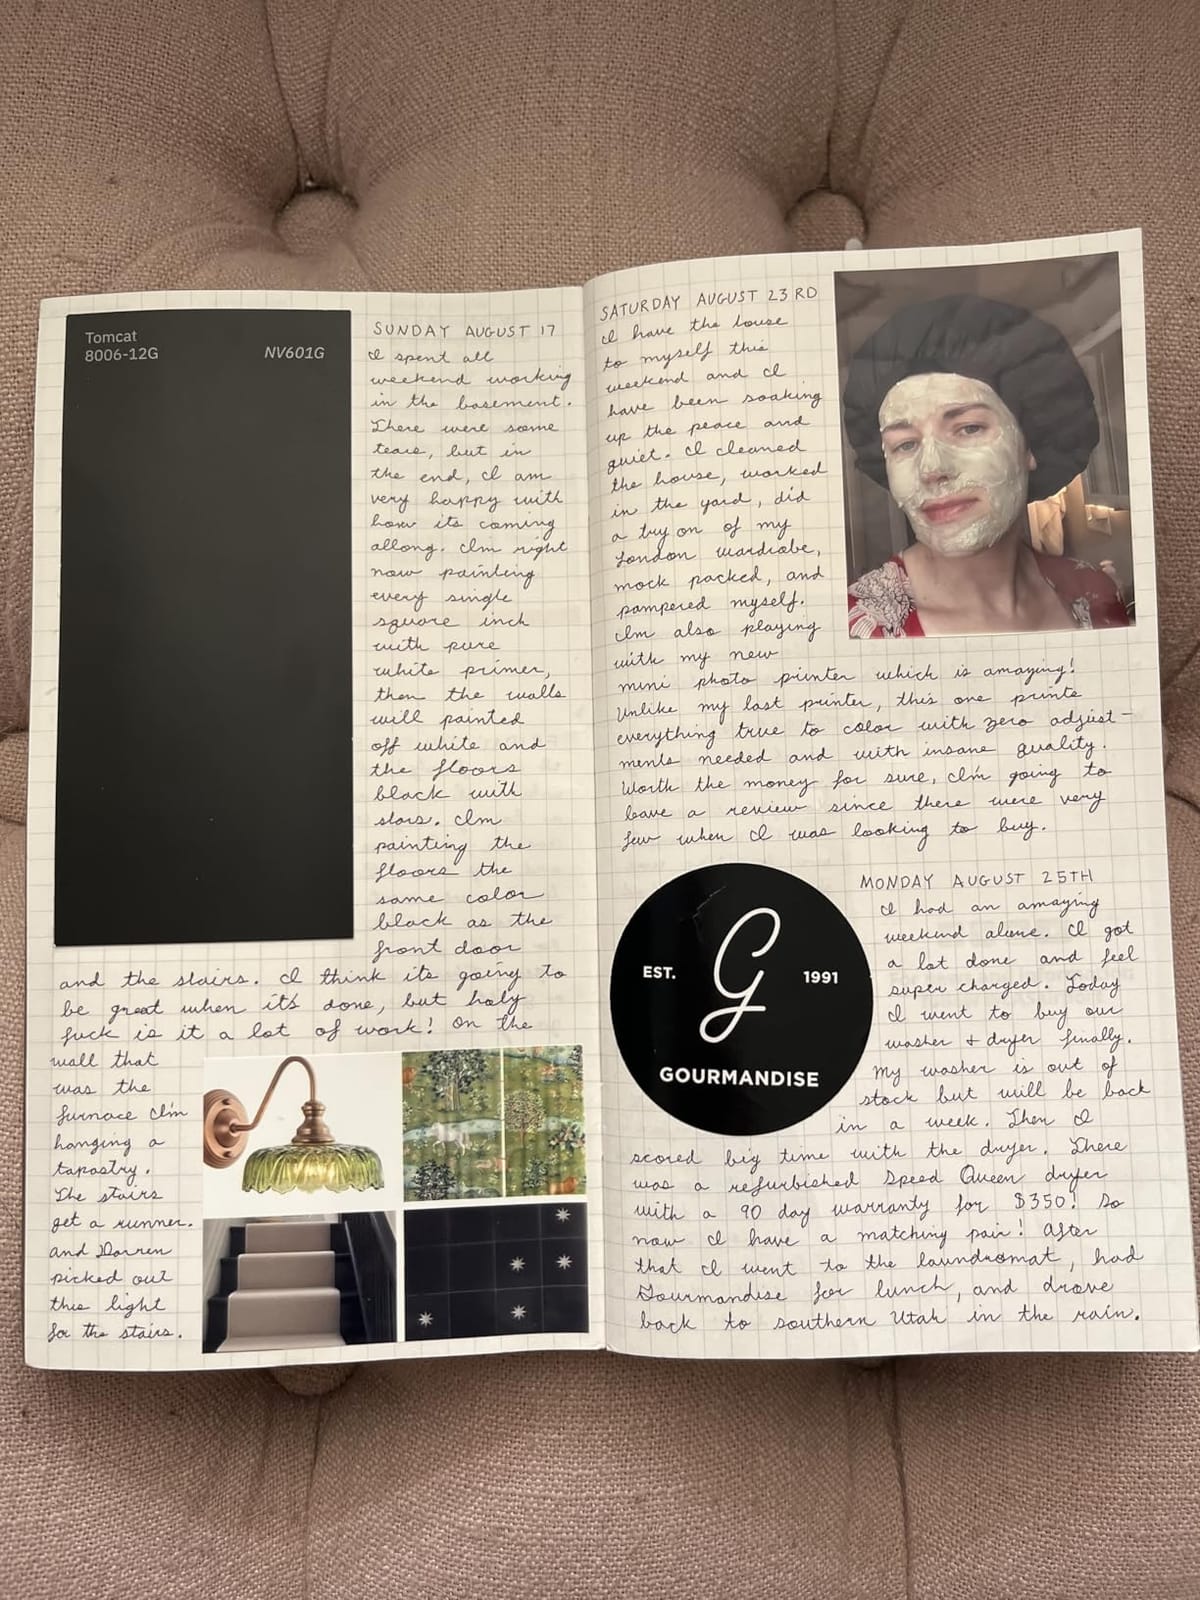 Tomcat
8006-12G
NV601G
SUNDAY AUGUST 17
I spent all
weekend working
in the basement.
There were some
tears, but in
the end, I am
very happy with
how its coming
allong. I'm right
now painting
every single
square inch
with pure
white primer,
then the walls
will painted
off white and
the floors
black with
stars. I'm
painting the
floors the
same color
black as the
front door
and the stairs. I think its going to
be great when it's done, but holy
fuck is it a lot of work! On the
wall that
was the
furnace I'm
hanging a
tapastry.
The stairs
get a runner.
and Darren
picked out
this light
for the stairs.
SATURDAY AUGUST 23RD
I have the house
to myself this
weekend and I
have been soaking
up the peace and
quiet. I cleaned
the house, worked
in the yard, did
a try on of my
London wardrobe,
mock packed, and
pampered myself.
I'm also playing
with my new
mini photo printer which is amazing!
Unlike my last printer, this one prints
everything true to color with zero adjust-
ments needed and with insane quality.
Worth the money for sure, I'm going to
leave a review since there were very
few when I was looking to buy.
EST.
G
1991
GOURMANDISE
MONDAY AUGUST 25TH
I had an amazing
weekend alone. I got
a lot done and feel
super charged. Today
I went to buy our
washer + dryer finally.
My washer is out of
stock but will be back
in a week. Then I
scored big time with the dryer. There
was a refurbished Speed Queen dryer
with a 90 day warranty for $350! So
now I have a matching pair! After
that I went to the laundromat, had
Gourmandise for lunch, and drove
back to southern Utah in the rain.